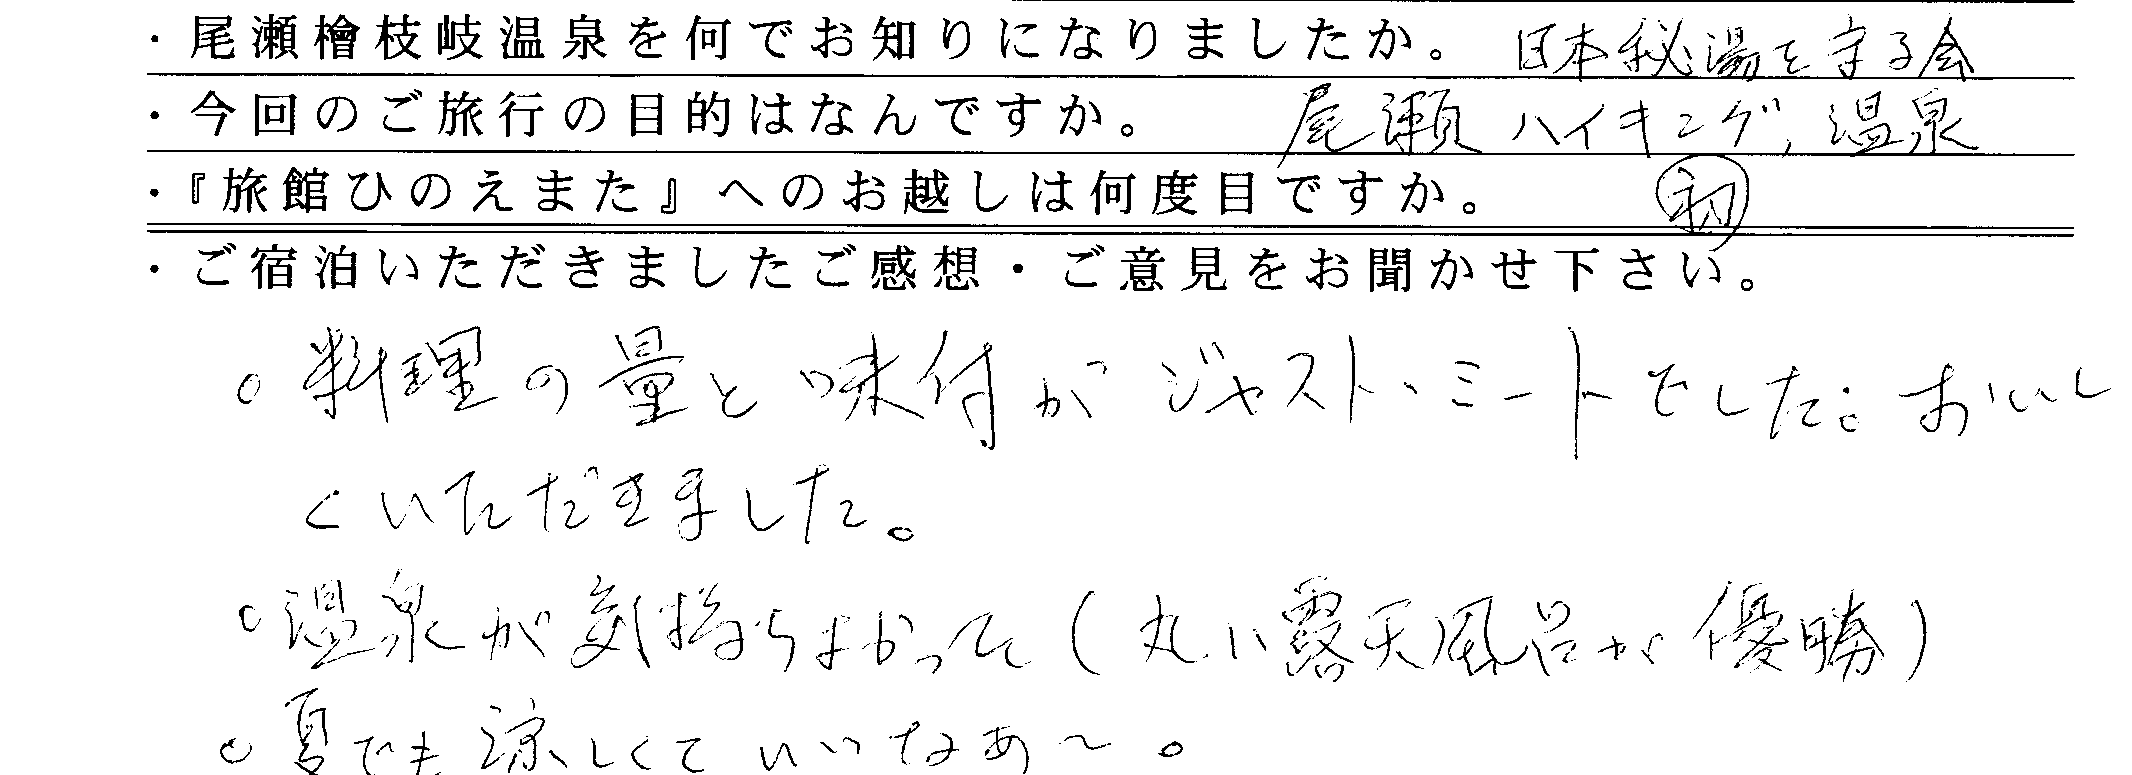 ・尾瀬檜枝岐温泉を何でお知りになりましたか。 日本秘湯を守る会
・今回のご旅行の目的はなんですか。 尾瀬ハイキング, 温泉
・『旅館ひのえまた』へのお越しは何度目ですか。 初
・ご宿泊いただきましたご感想・ご意見をお聞かせ下さい。
○ 料理の量と味付がジャスト・ミートでした。おいし
くいただきました。
○ 温泉が気持ちよかって(丸い露天風呂が優勝)
○ 夏でも涼しくていいなあ〜。